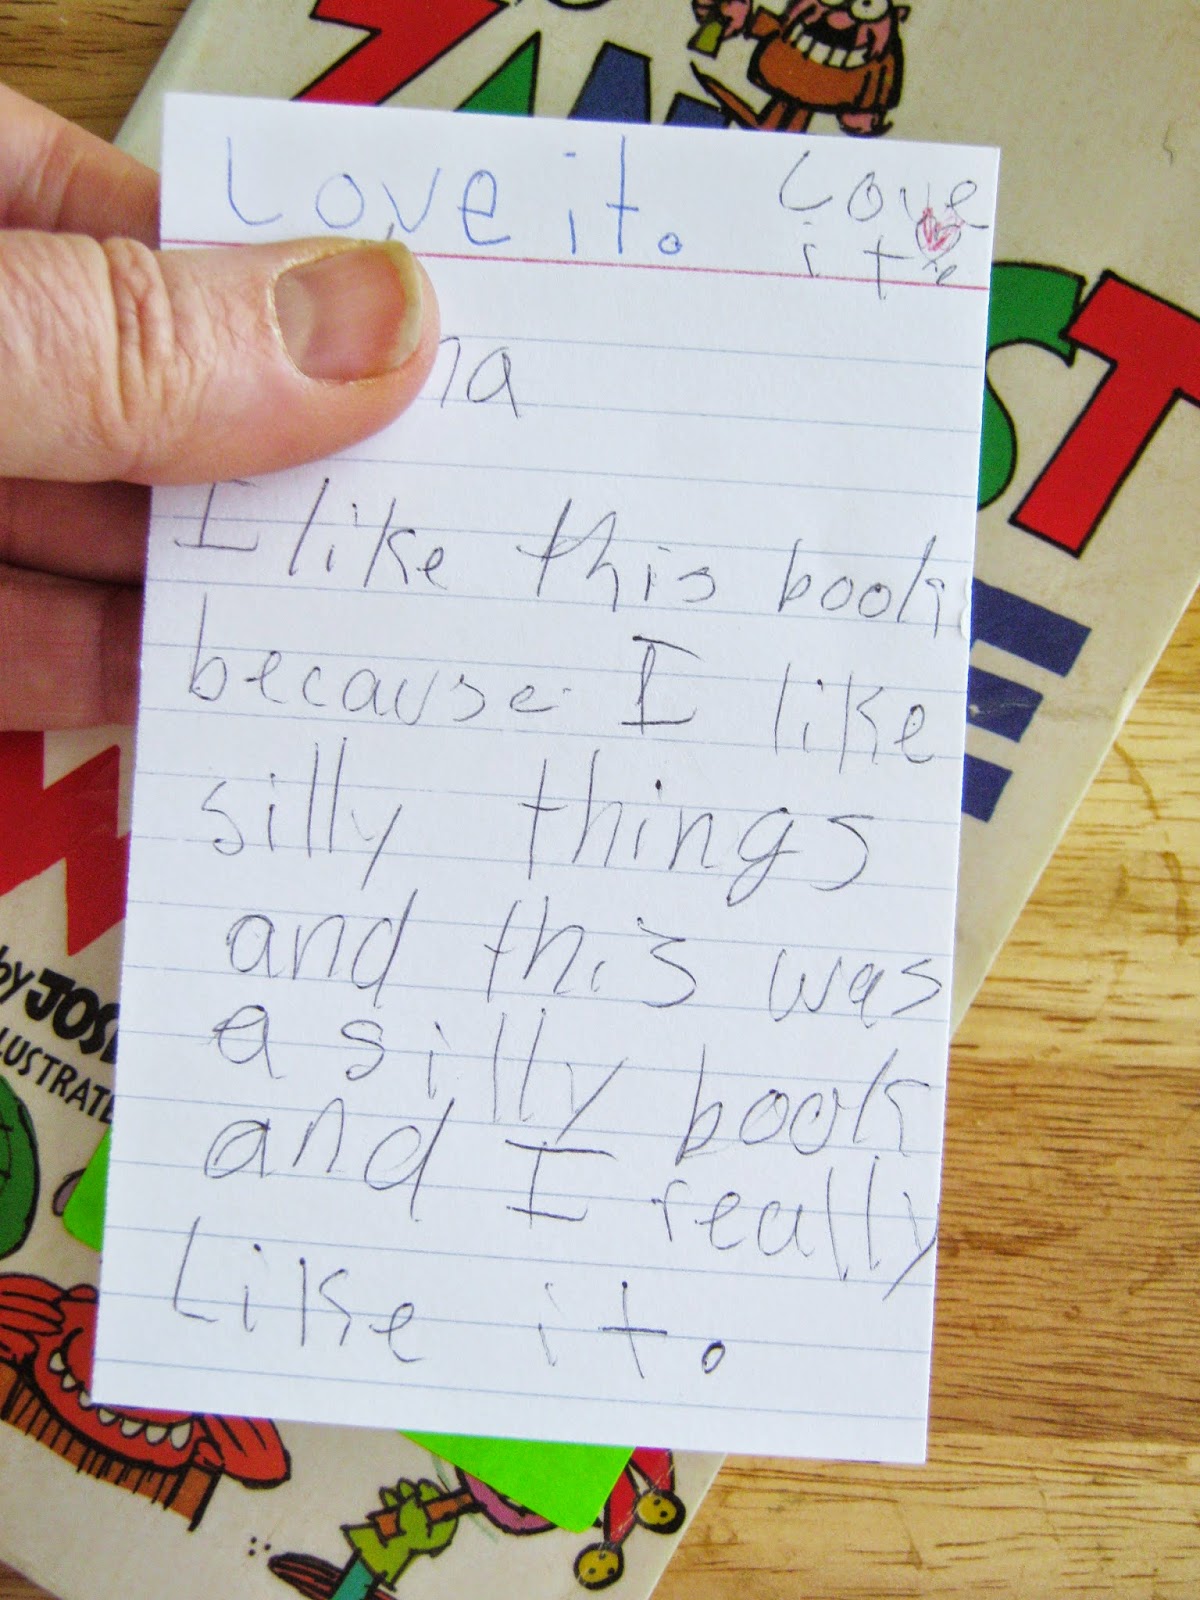 Love it. Love
it
na
I like this book
because I like
silly things
and this was
a silly book
and I really
Like it.
ST
by JOS